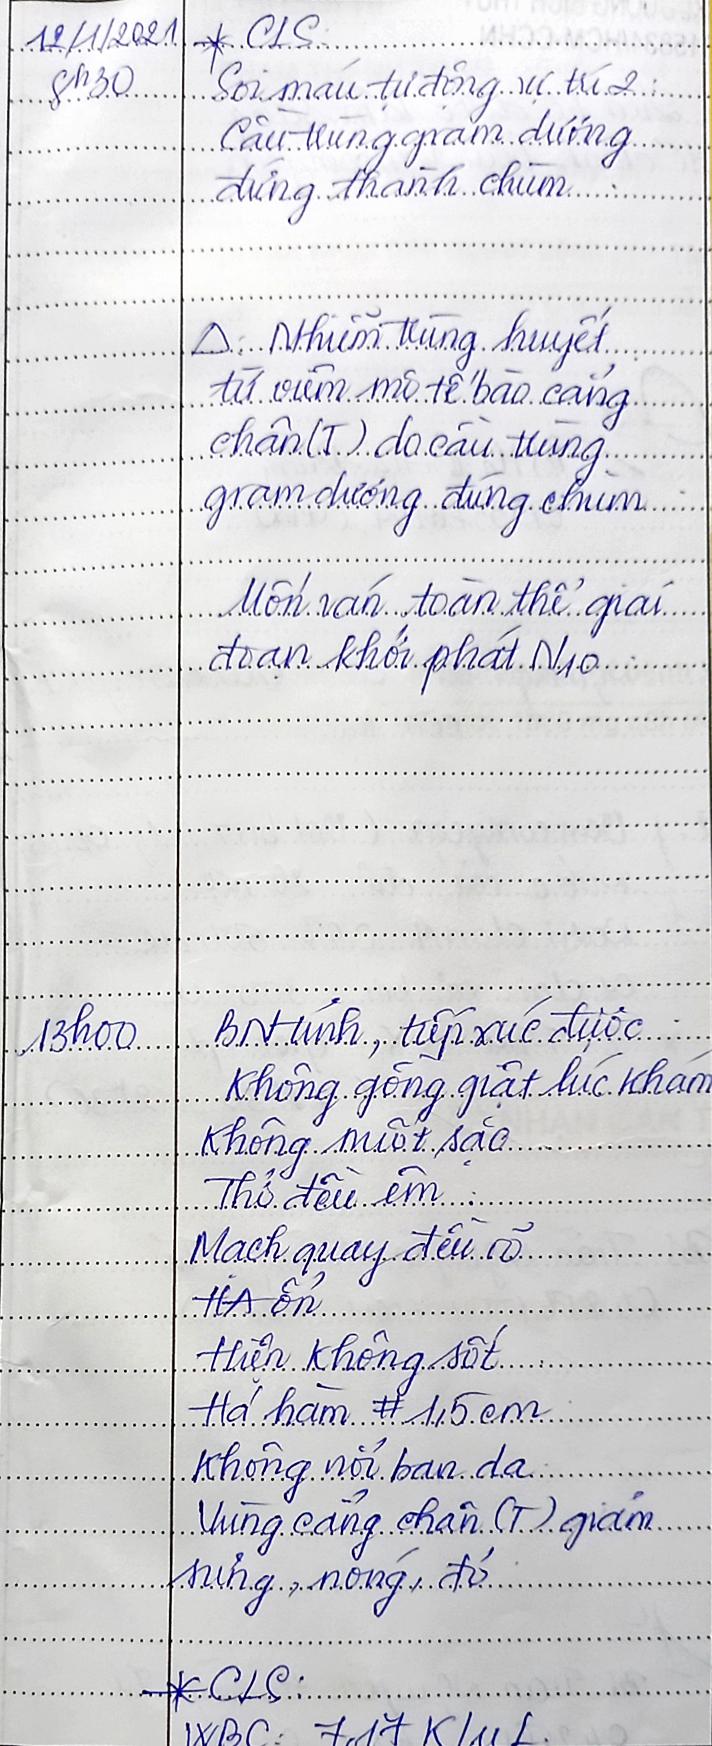 12/1/2021 * CLS:
8h30 Soi máu tự động vị trí 2:
Cầu trùng gram dương
đứng thành chùm
Δ: Nhiễm trùng huyết
từ viêm mô tế bào cẳng
chân (T) do cầu trùng
gram dương đứng chùm
Uốn ván toàn thể giai
đoạn khởi phát N10
13h00 BN tỉnh, tiếp xúc được
Không gồng giật lúc khám
Không nuốt sặc
Thở đều êm
Mạch quay đều rõ
HA ổn
Hiện không sốt
Há hàm # 1,5 cm
Không nổi ban da
Vùng cẳng chân (T) giảm
sưng, nóng, đỏ
* CLS:
WBC: 7,17 K/uL